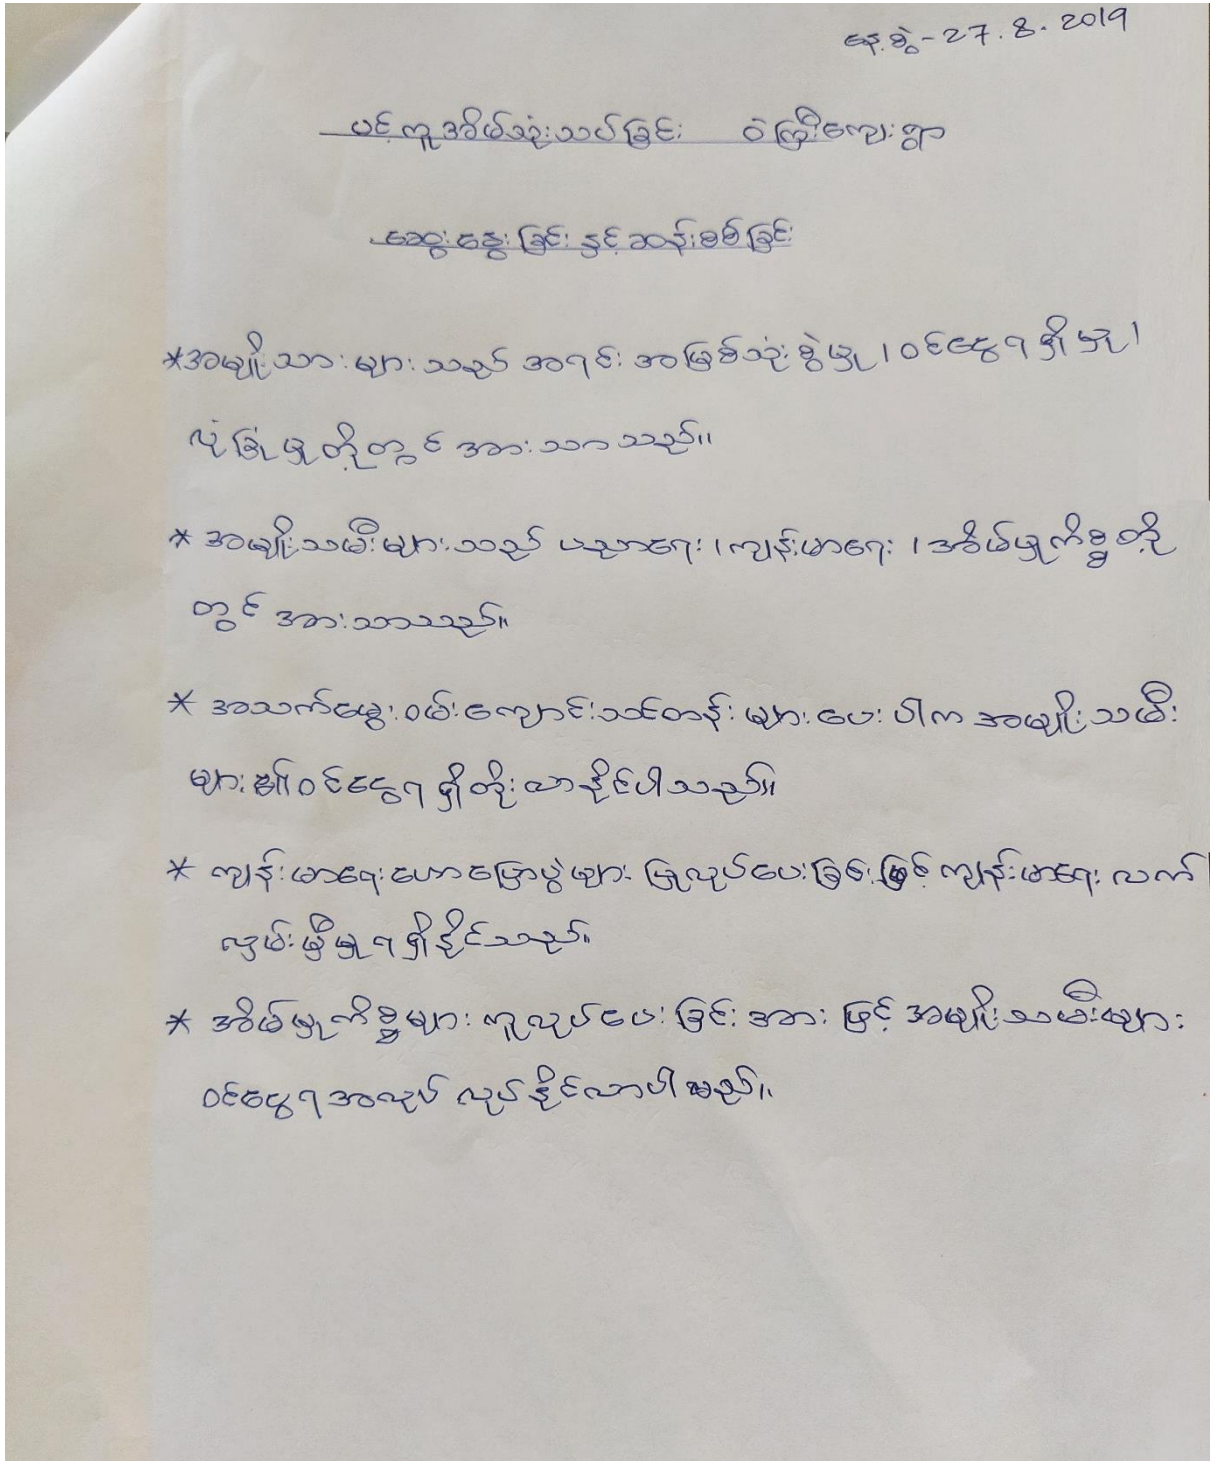 နေ့စွဲ - 27. 8. 2019
ပင့်ကူအိမ်သုံးသပ်ခြင်း ဝဲကြီးကျေးရွာ
ဆွေးနွေးခြင်း နှင့် ဆန်းစစ်ခြင်း
*အမျိုးသားများသည် အရင်းအမြစ်သုံးစွဲမှု ၊ ဝင်ငွေရရှိမှု ၊
လုံခြုံမှုတို့တွင် အားသာသည်။
* အမျိုးသမီးများသည် ပညာရေး ၊ ကျန်းမာရေး ၊ အိမ်မှုကိစ္စတို့
တွင် အားသာသည်။
* အသက်မွေးဝမ်းကျောင်းသင်တန်းများပေးပါက အမျိုးသမီး
များ၏ဝင်ငွေရရှိတိုးလာနိုင်ပါသည်။
* ကျန်းမာရေးဟောပြောပွဲများ ပြုလုပ်ပေးခြင်းဖြင့် ကျန်းမာရေး လက်
လှမ်းမှီမှုရရှိနိုင်သည်။
* အိမ်မှုကိစ္စများ ကူလုပ်ပေးခြင်းအားဖြင့် အမျိုးသမီးများ
ဝင်ငွေရအလုပ် လုပ်နိုင်လာပါမည်။